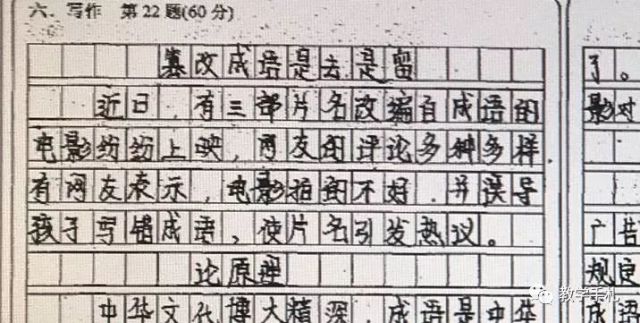 六、写作 第22题(60分)
篡改成语是去是留
近日,有三部片名改编自成语的
电影纷纷上映,网友的评论多种多样.
有网友表示,电影拍的不好.并误导
孩子写错成语,使片名引发热议。
论原理
中华文化博大精深.成语是中华
了。
影对
广告
规定
成语
教学手札